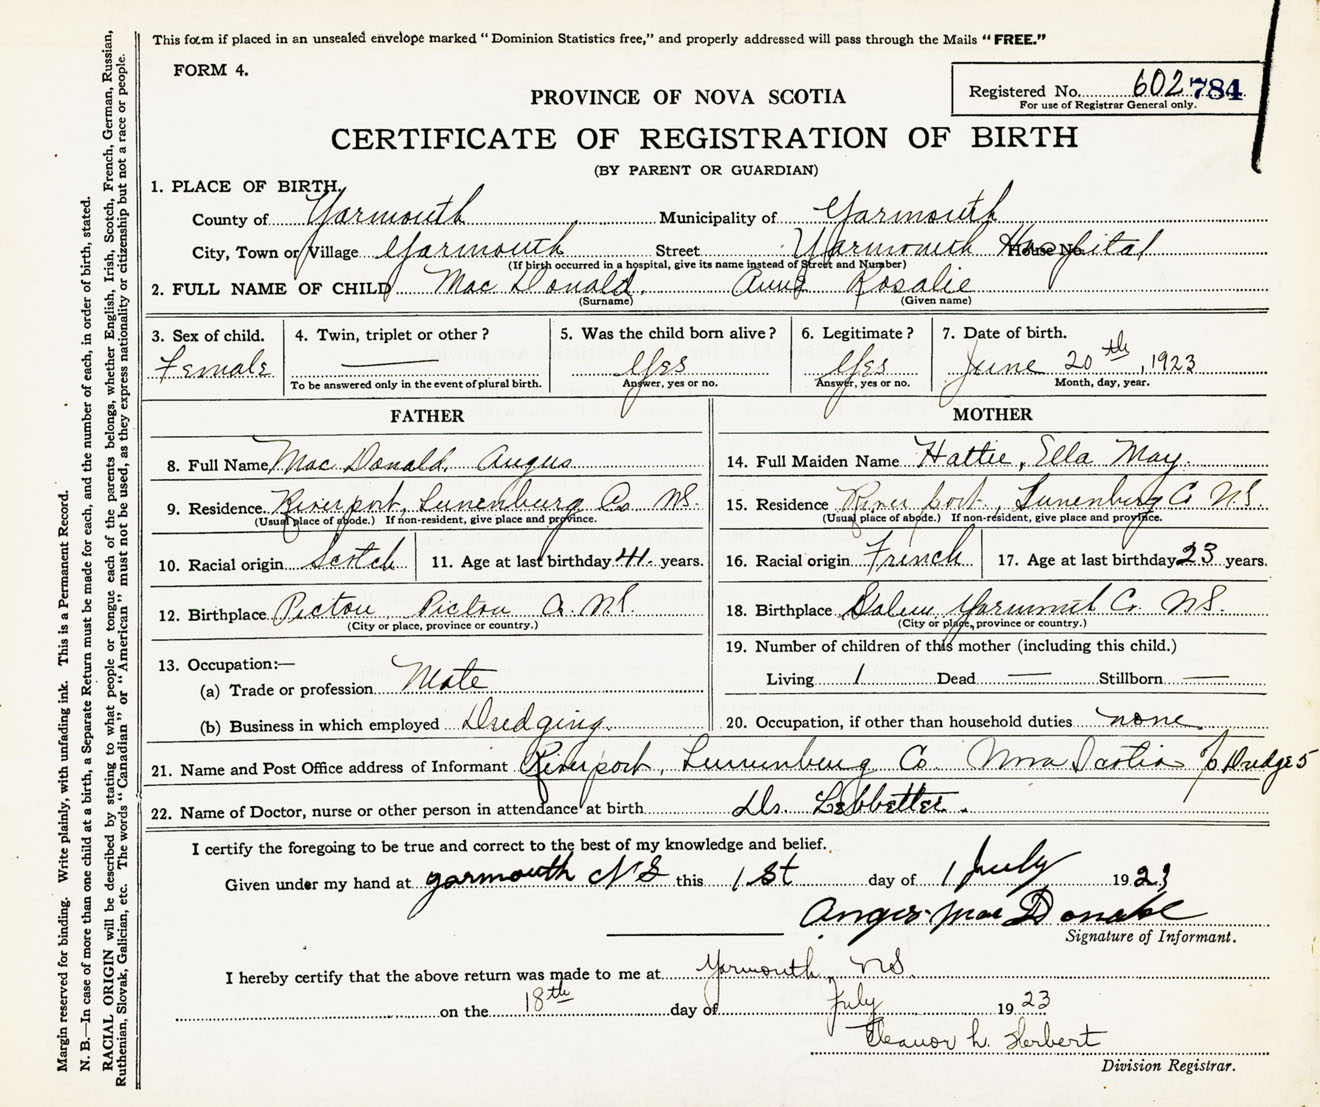 This form if placed in an unsealed envelope marked "Dominion Statistics free," and properly addressed will pass through the Mails "FREE."
FORM 4.
Registered No. 602 784
For use of Registrar General only.
PROVINCE OF NOVA SCOTIA
CERTIFICATE OF REGISTRATION OF BIRTH
(BY PARENT OR GUARDIAN)
1. PLACE OF BIRTH.
County of Yarmouth Municipality of Yarmouth
City, Town or Village Yarmouth Street Yarmouth Hospital House No.
(If birth occurred in a hospital, give its name instead of Street and Number)
2. FULL NAME OF CHILD Mac Donald, Anna Rosalie
(Surname) (Given name)
3. Sex of child. 4. Twin, triplet or other? 5. Was the child born alive? 6. Legitimate? 7. Date of birth.
Female — Yes Yes June 20th, 1923
To be answered only in the event of plural birth. Answer, yes or no. Answer, yes or no. Month, day, year.
FATHER
8. Full Name Mac Donald, Angus
9. Residence. Riverport, Lunenburg Co NS.
(Usual place of abode.) If non-resident, give place and province.
10. Racial origin Scotch 11. Age at last birthday 41. years.
12. Birthplace Pictou, Pictou Co. NS.
(City or place, province or country.)
13. Occupation:—
(a) Trade or profession Mate
(b) Business in which employed Dredging.
MOTHER
14. Full Maiden Name Hattie, Ella May.
15. Residence River port, Lunenburg Co NS.
(Usual place of abode.) If non-resident, give place and province.
16. Racial origin French 17. Age at last birthday 23 years.
18. Birthplace Salem Yarmouth Co. NS.
(City or place, province or country.)
19. Number of children of this mother (including this child.)
Living 1 Dead — Stillborn —
20. Occupation, if other than household duties none
21. Name and Post Office address of Informant Riverport, Lunenburg Co. Nova Scotia Dredge 5
22. Name of Doctor, nurse or other person in attendance at birth Dr. Lebbetter.
I certify the foregoing to be true and correct to the best of my knowledge and belief.
Given under my hand at yarmouth NS this 1st day of 1 July 1923
Angus Mac Donald
Signature of Informant.
I hereby certify that the above return was made to me at Yarmouth, NS.
on the 18th day of July 1923
Eleanor L. Herbert
Division Registrar.
Margin reserved for binding. Write plainly, with unfading ink. This is a Permanent Record.
N. B.—In case of more than one child at a birth, a Separate Return must be made for each, and the number of each, in order of birth, stated.
RACIAL ORIGIN will be described by stating to what people or tongue each of the parents belongs, whether English, Irish, Scotch, French, German, Russian,
Ruthenian, Slovak, Galician, etc. The words "Canadian" or "American" must not be used, as they express nationality or citizenship but not a race or people.